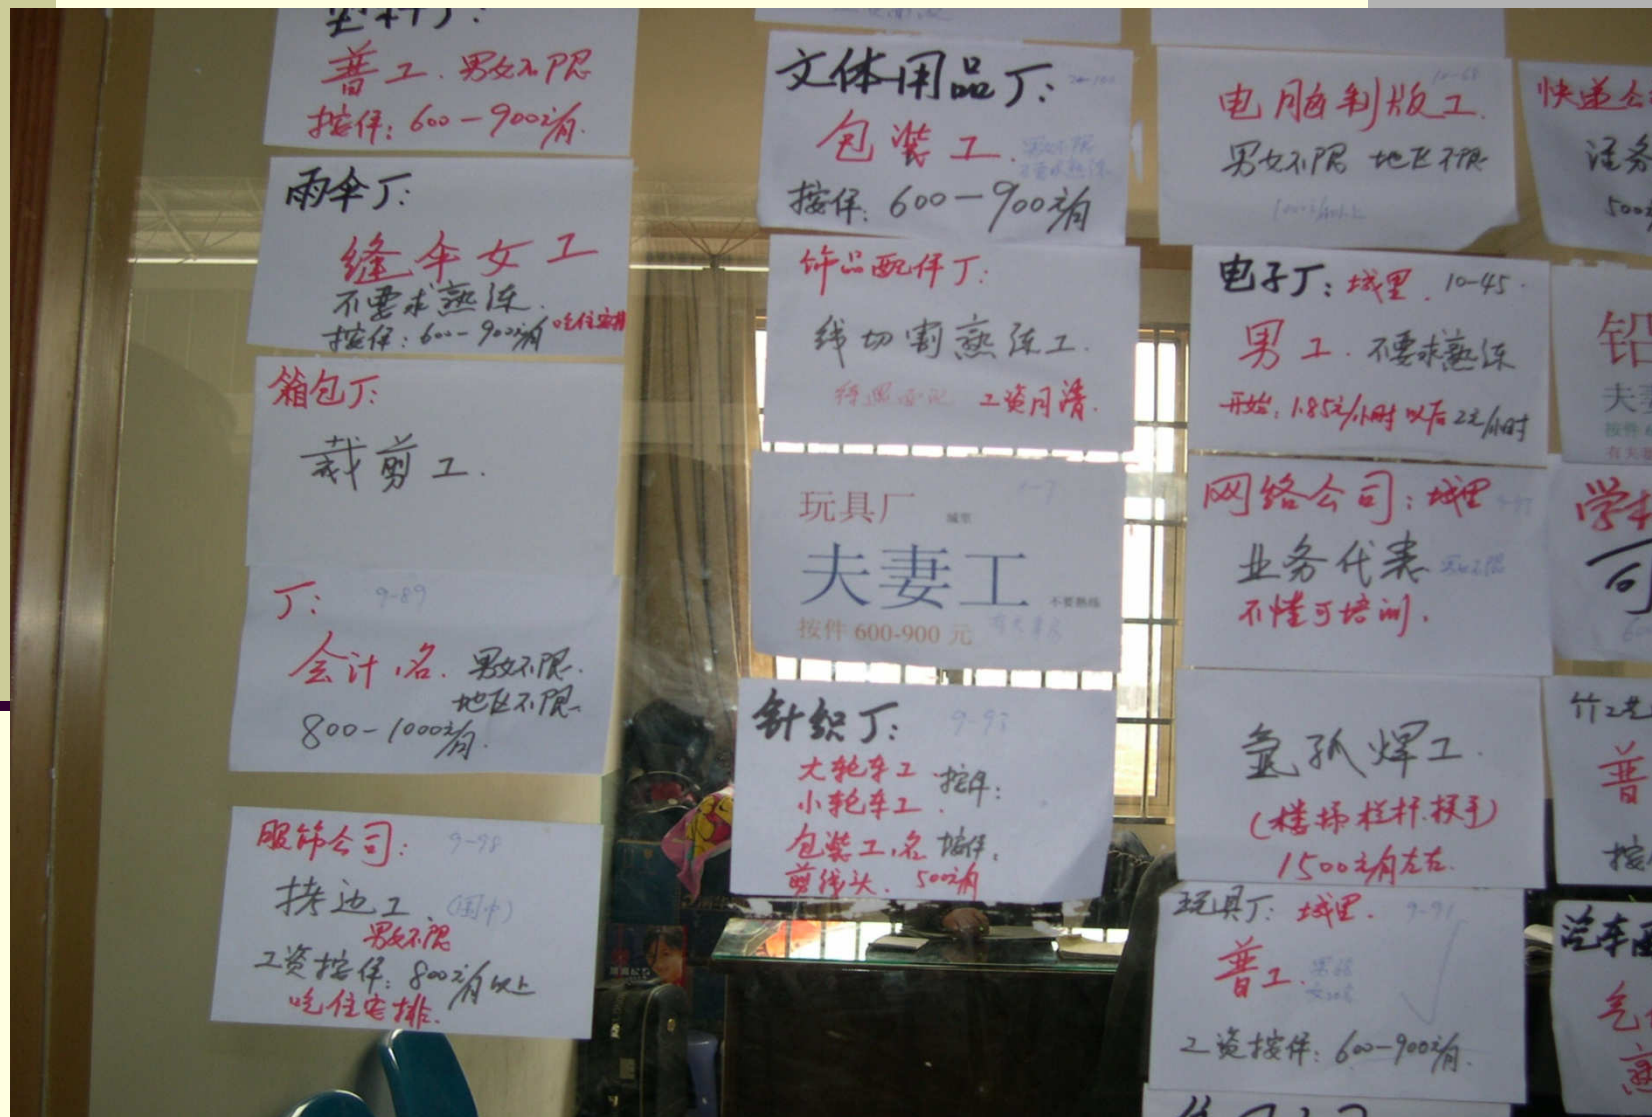 塑料厂:
普工. 男女不限
按件: 600-900元/月.
雨伞厂:
缝伞女工
不要求熟练.
按件: 600-900元/月 吃住安排
箱包厂:
裁剪工.
厂: 9-89
会计1名. 男女不限.
地区不限
800-1000元/月.
服饰公司: 9-98
拷边工. (围巾)
男女不限
工资按件: 800元/月以上
吃住安排.
文体用品厂:
包装工. 男女不限
不要求熟练
按件: 600-900元/月
饰品配件厂:
线切割熟练工.
工资月清.
玩具厂 城里
夫妻工 不要熟练
按件 600-900 元
针织厂: 9-93
大轮车工 按件:
小轮车工.
包装工1名 按件.
剪线头. 500元/月
电脑制版工.
男女不限 地区不限
电子厂: 城里. 10-45.
男工. 不要求熟练
开始: 1.85元/小时以后2元/小时
网络公司: 城里
业务代表 男女不限
不懂可培训.
氩弧焊工.
(楼梯.栏杆.扶手)
1500元/月左右.
玩具厂: 城里. 9-91
普工.
工资按件: 600-900元/月.
快递公
500元
铅
夫妻
按件 6
学
可
竹工艺
普
按
汽车